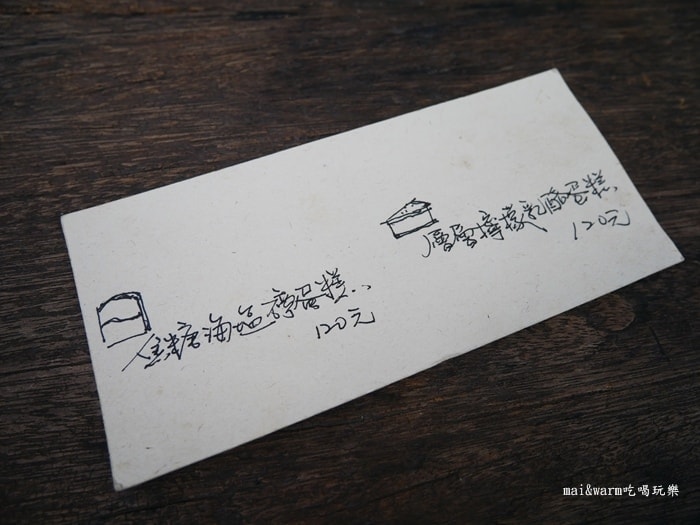 焦糖海塩捲蛋糕..
120元
層層檸檬乳酪蛋糕.
120元
mai&warm吃喝玩樂